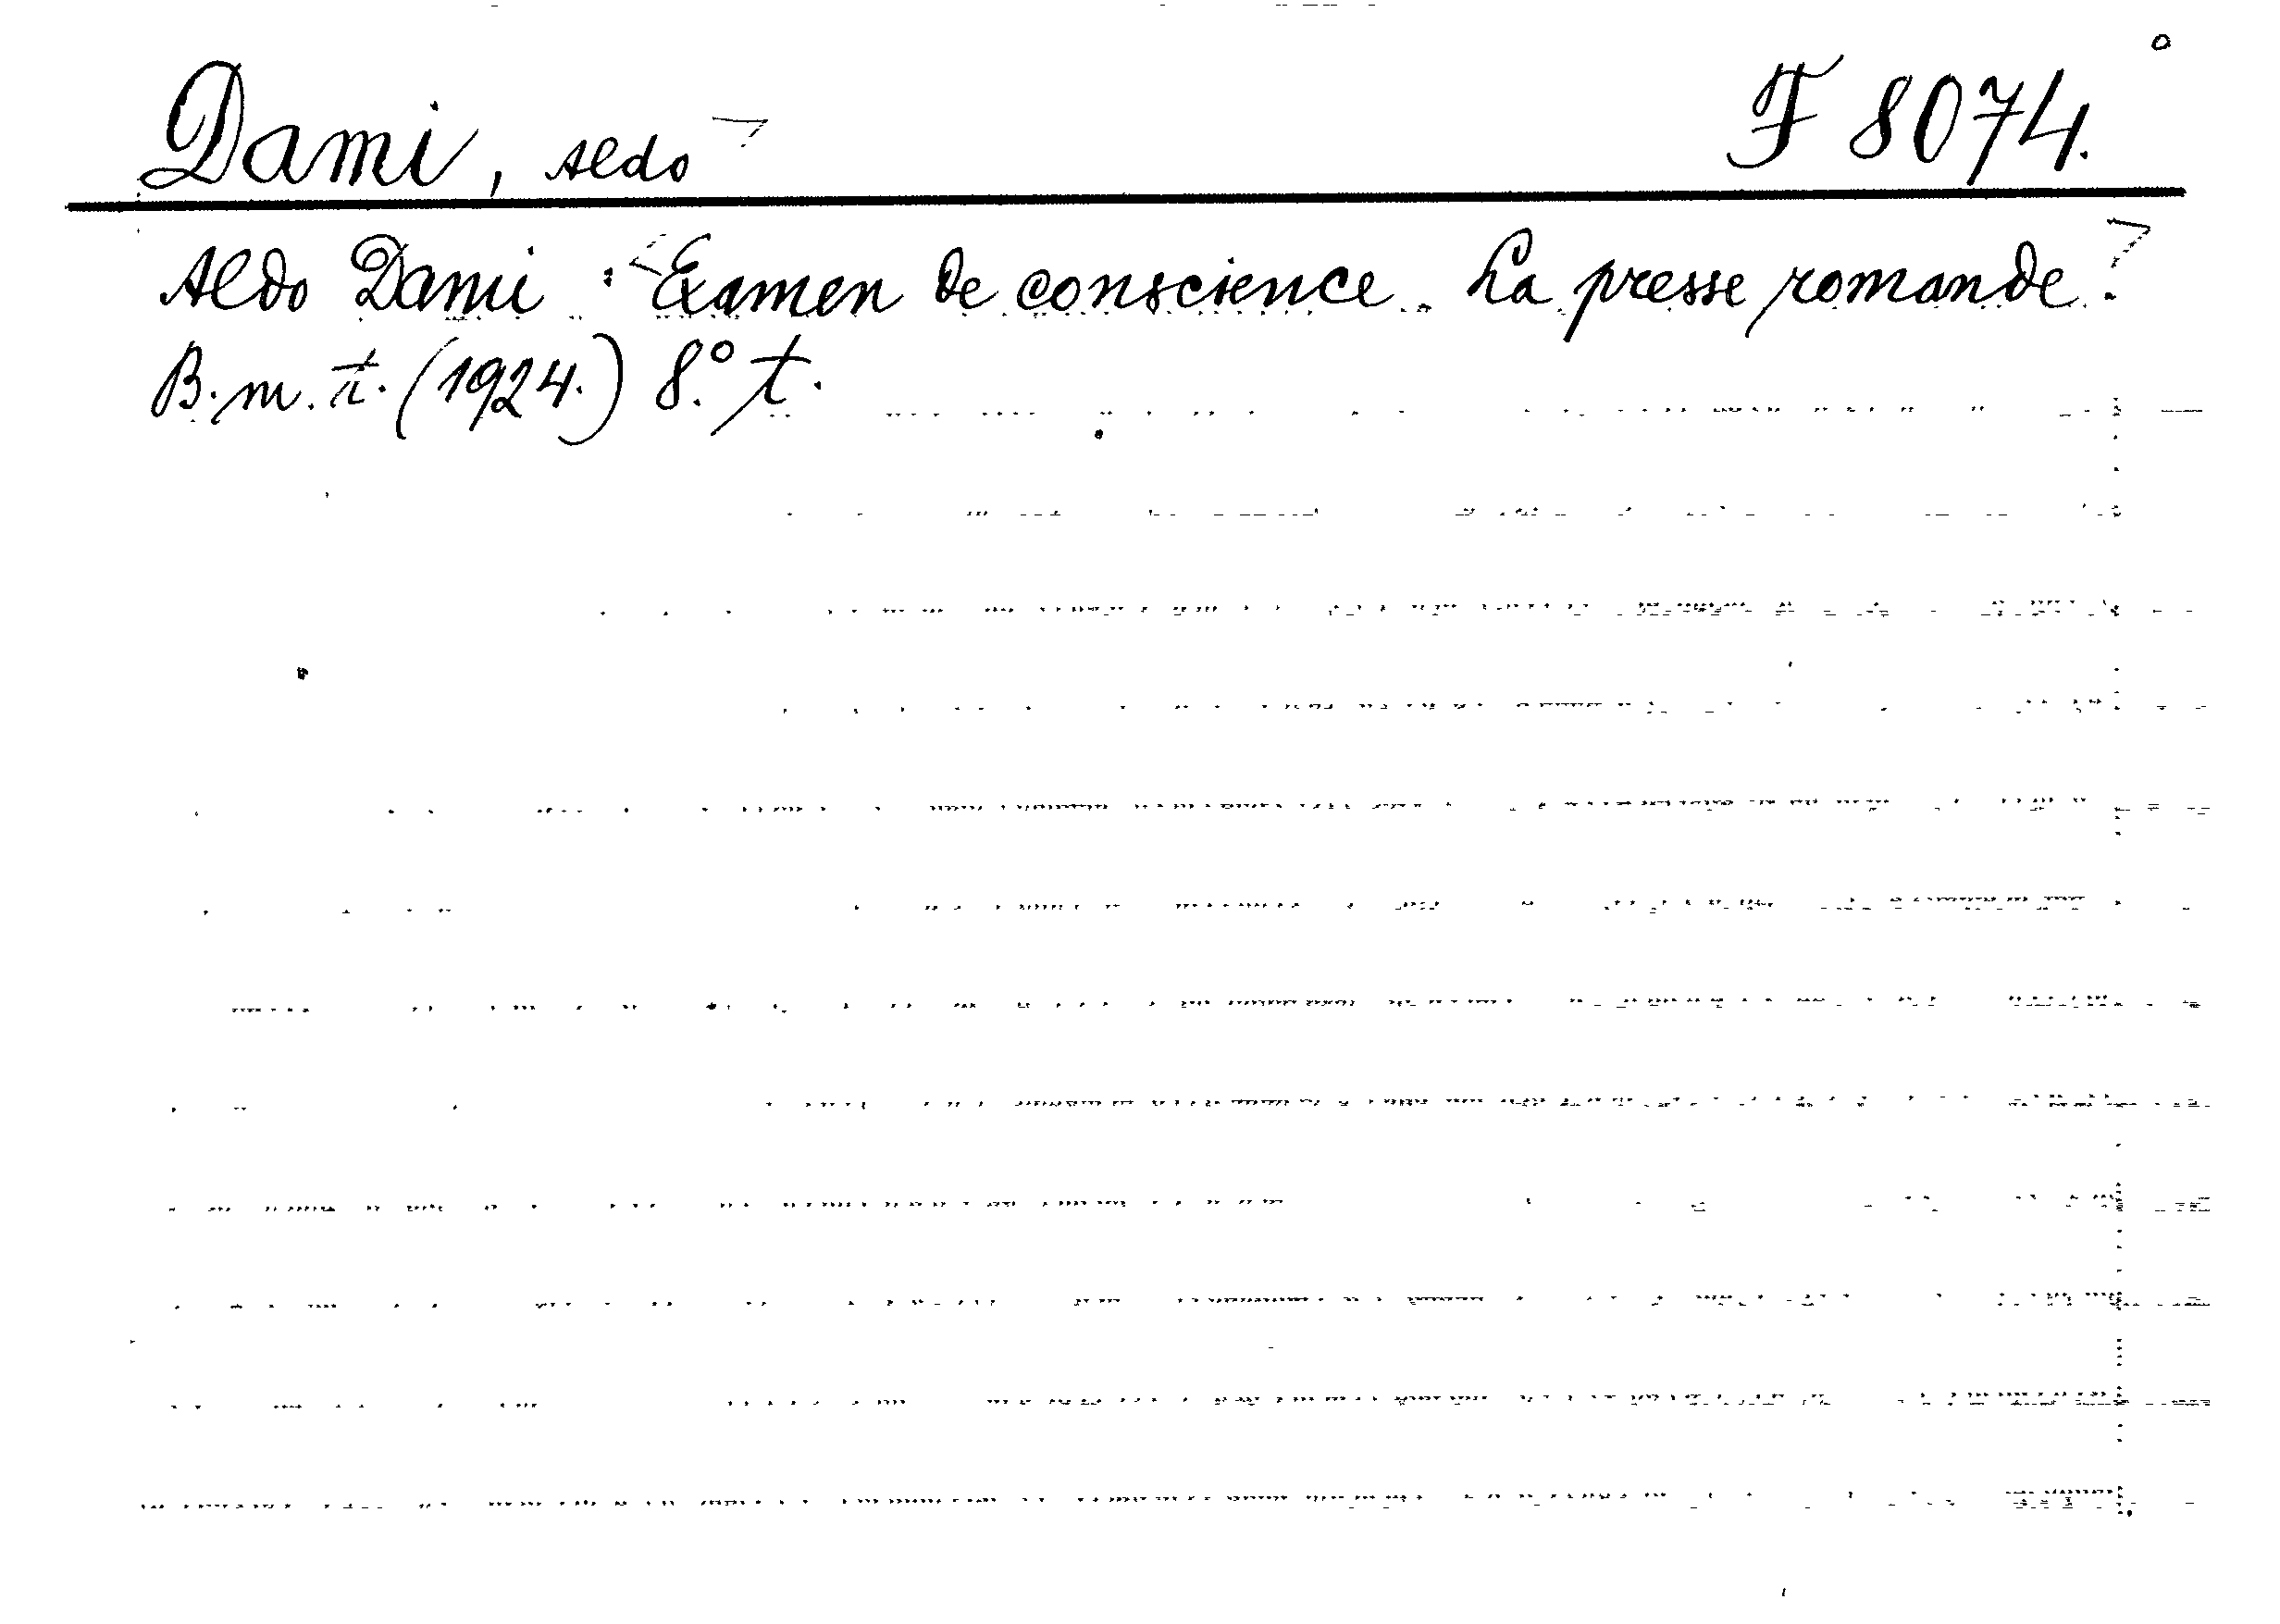 Dami, Aldo F 8074.
Aldo Dami: Examen de conscience. La presse romande.
B. m. i. (1924.) 8.° t.